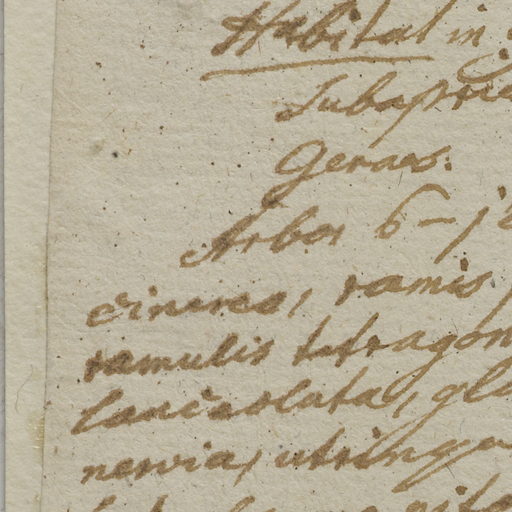 Habitat in
Subapric
Geraes.
Arbor 6-
cinereo, ramis
ramulis tetragon
lanceolata, gla
nervia, utrinque